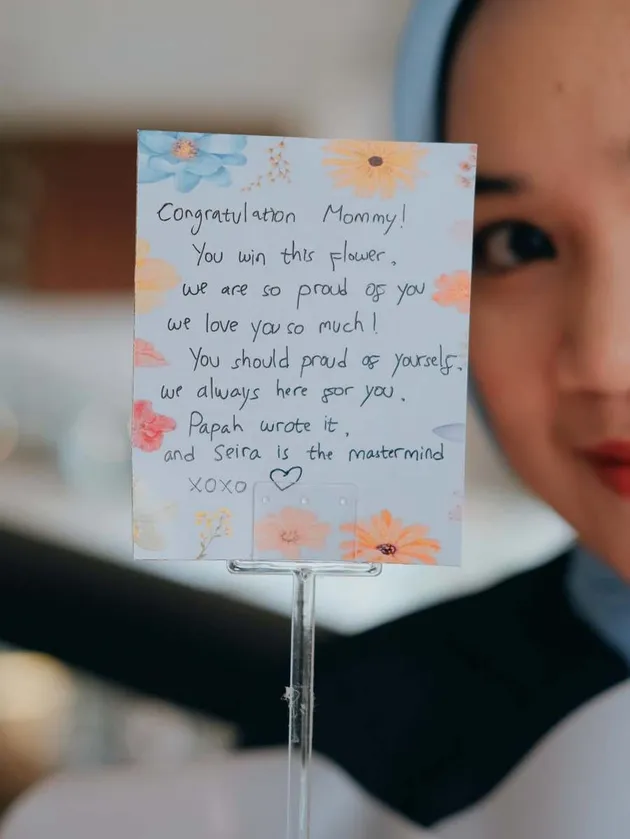 Congratulation Mommy!
You win this flower.
we are so proud of you
we love you so much!
You should proud of yourself.
we always here for you.
Papah wrote it,
and Seira is the mastermind
xoxo